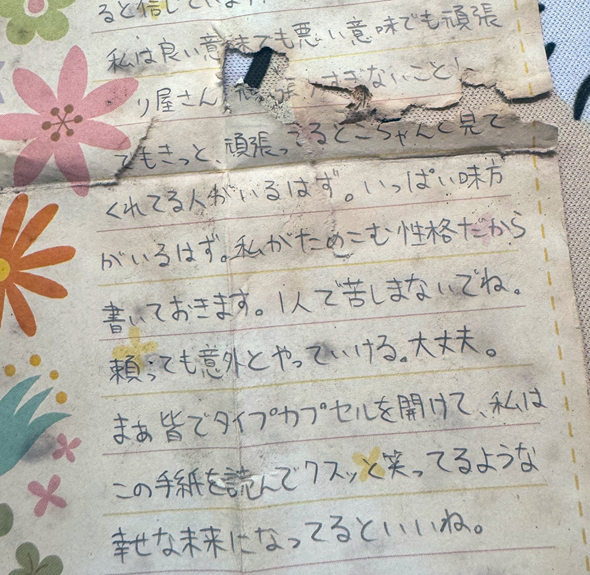 ると信じています
私は良い意味でも悪い意味でも頑張
り屋さん 張 すぎないこと!
でもきっと、頑張ってるところちゃんと見て
くれてる人がいるはず。いっぱい味方
がいるはず。私がためこむ性格だから
書いておきます。1人で苦しまないでね。
頼っても意外とやっていける。大丈夫。
まあ皆でタイプカプセルを開けて、私は
この手紙を読んでクスッと笑ってるような
幸せな未来になってるといいね。